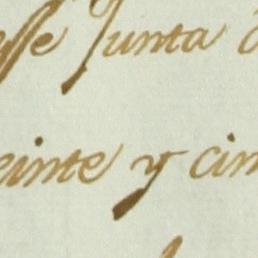 esse Junta
einte y cin